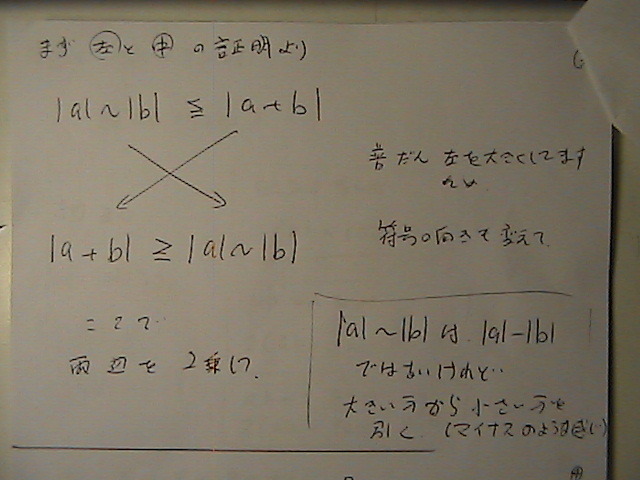 まず 左 と 中 の証明より
|a|～|b| ≦ |a+b|
普だん 左を大きくしてます
符号の向きを変えて
|a+b| ≧ |a|～|b|
ここで
両辺を2乗して
|a|～|b| は |a|-|b|
ではないけれど‥
大きい方から小さい方を
引く (マイナスのような感じ)